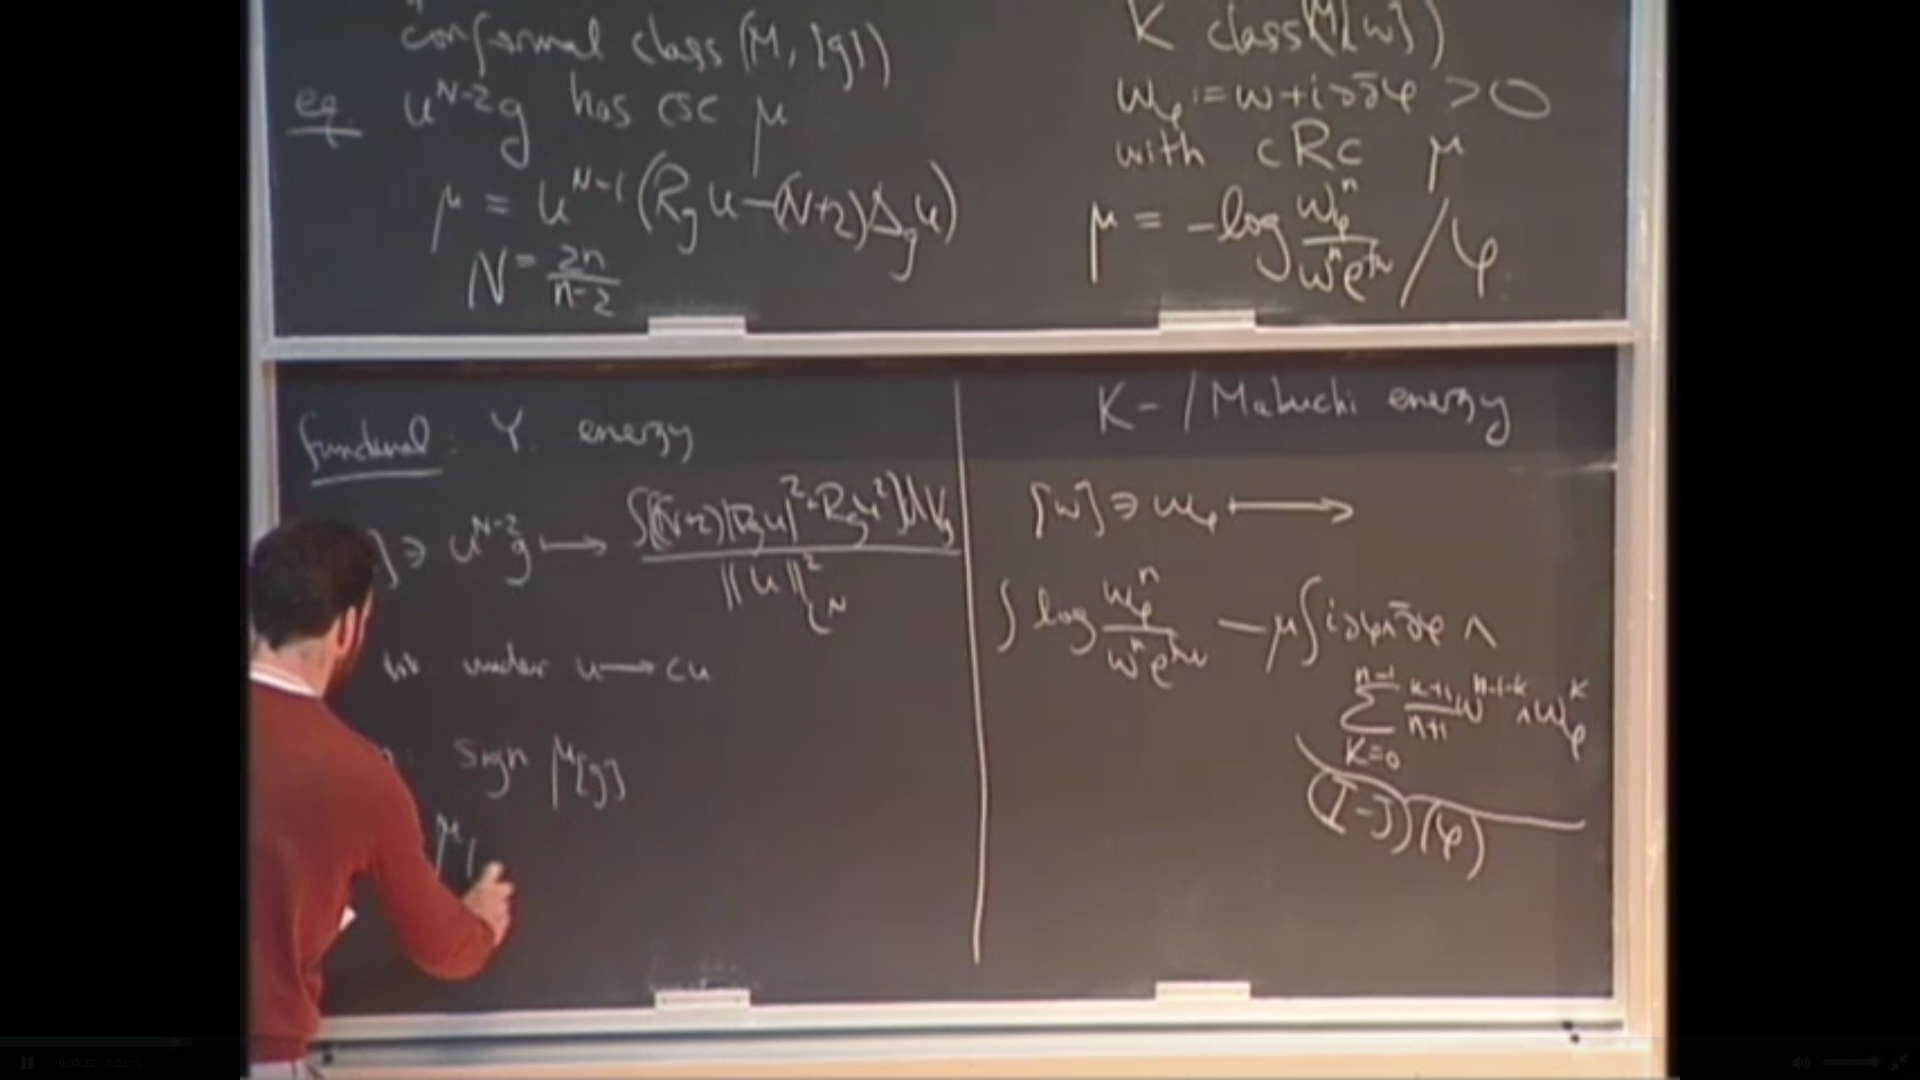 conformal class (M, [g])
eq. u^{N-2}g has csc μ
μ = u^{N-1}(R_g u-(N+2)Δ_g u)
N = \frac{2n}{n-2}
K class (M, [ω])
ω_φ := ω+i∂∂̄φ > 0
with cRc μ
μ = -log \frac{ω_φ^n}{ω^n e^{f_ω}} / φ
functional: Y. energy
] ∋ u^{N-2}g ⟼ \frac{∫((N+2)|∇_g u|^2+R_g u^2)dV_g}{||u||^2_{L^N}}
under u → cu
sign μ[g]
μ
K- / Mabuchi energy
[ω] ∋ ω_φ ⟼
∫ log \frac{ω_φ^n}{ω^n e^{f_ω}} - μ∫i∂φ∧∂̄φ ∧
\sum_{k=0}^{n-1} \frac{k+1}{n+1} ω^{n-1-k} ∧ ω_φ^k
(I-J)(φ)
0:05:32 / 1:02:15